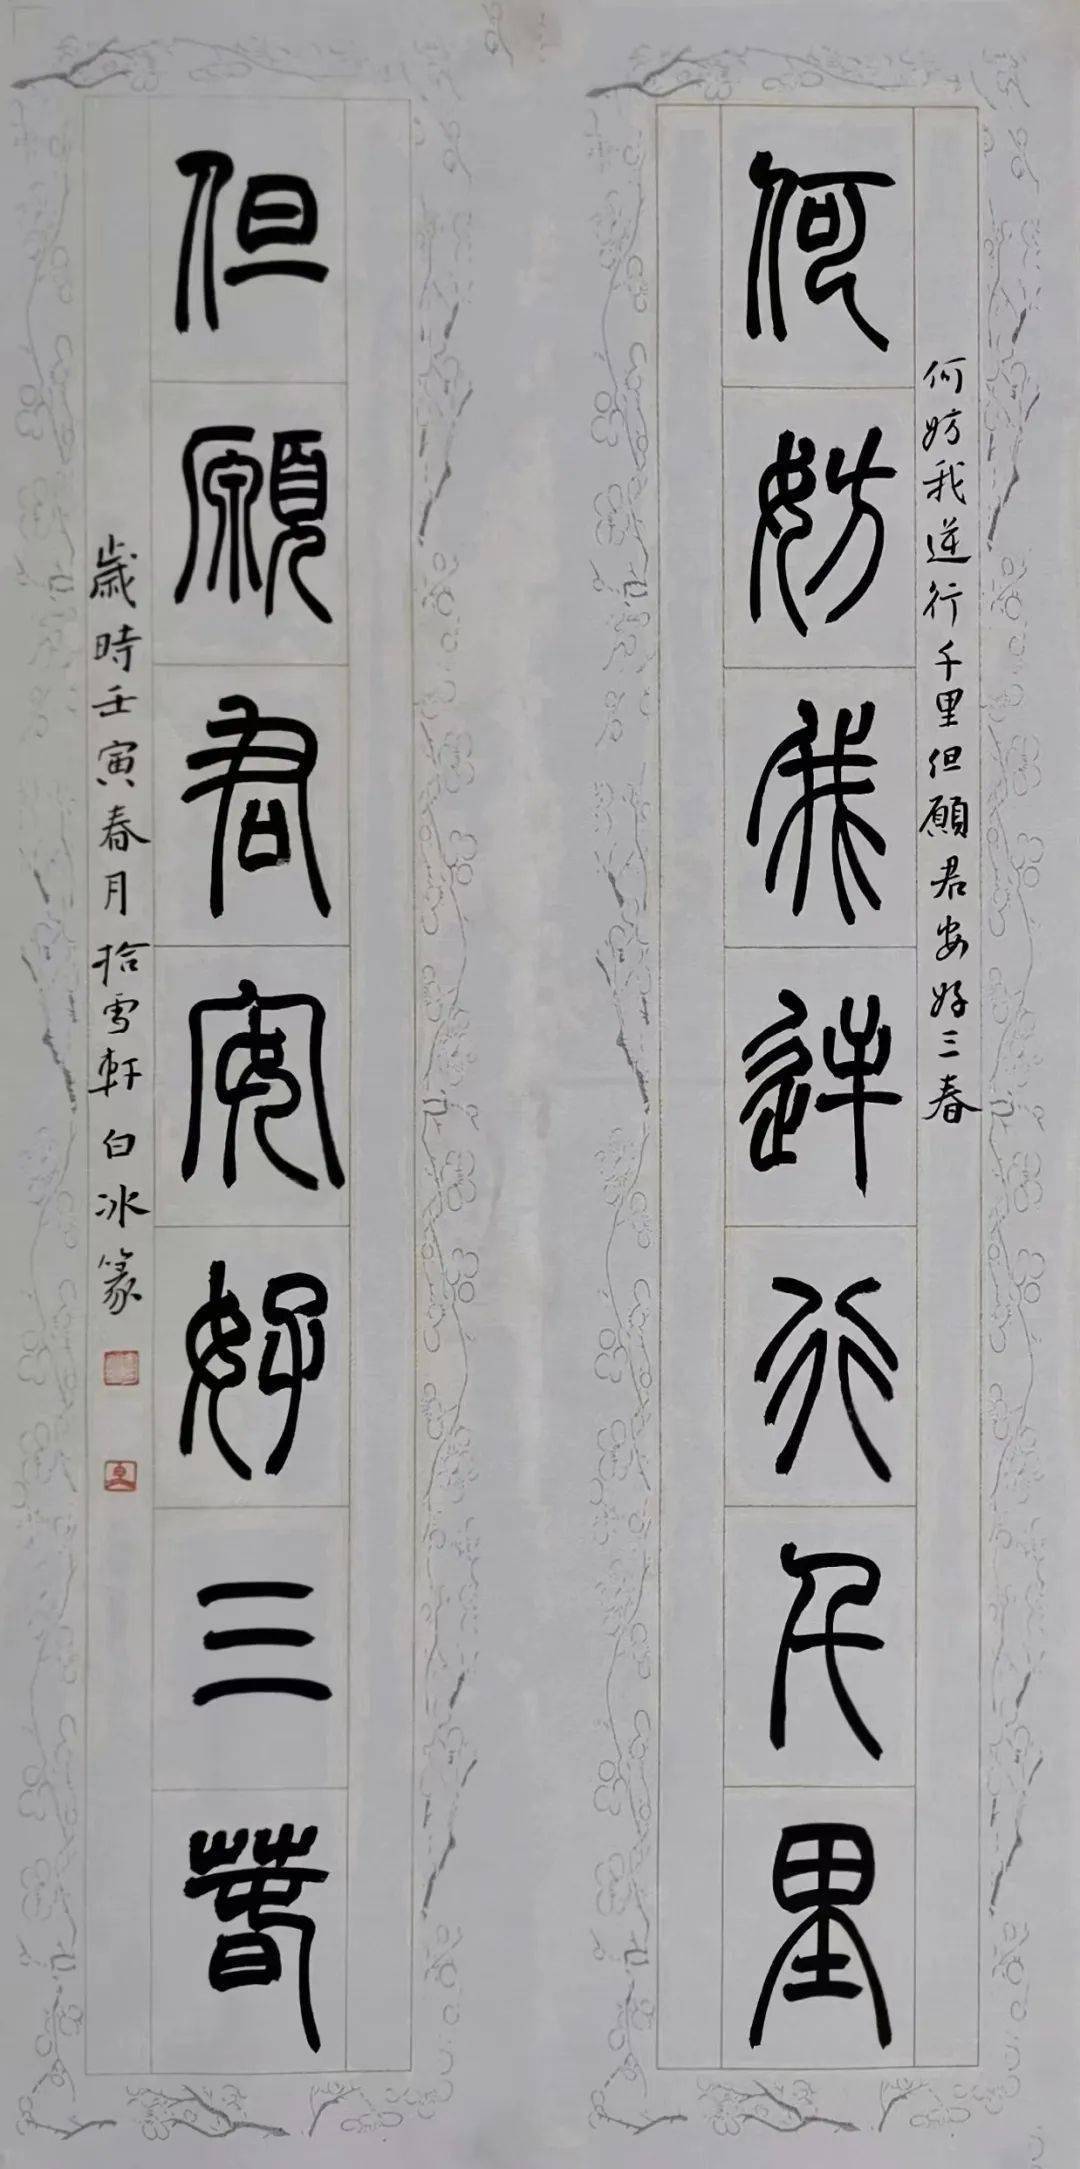 何妨我逆行千里但願君安好三春
何妨我逆行千里
但願君安好三春
歲時壬寅春月拾雪軒白冰篆